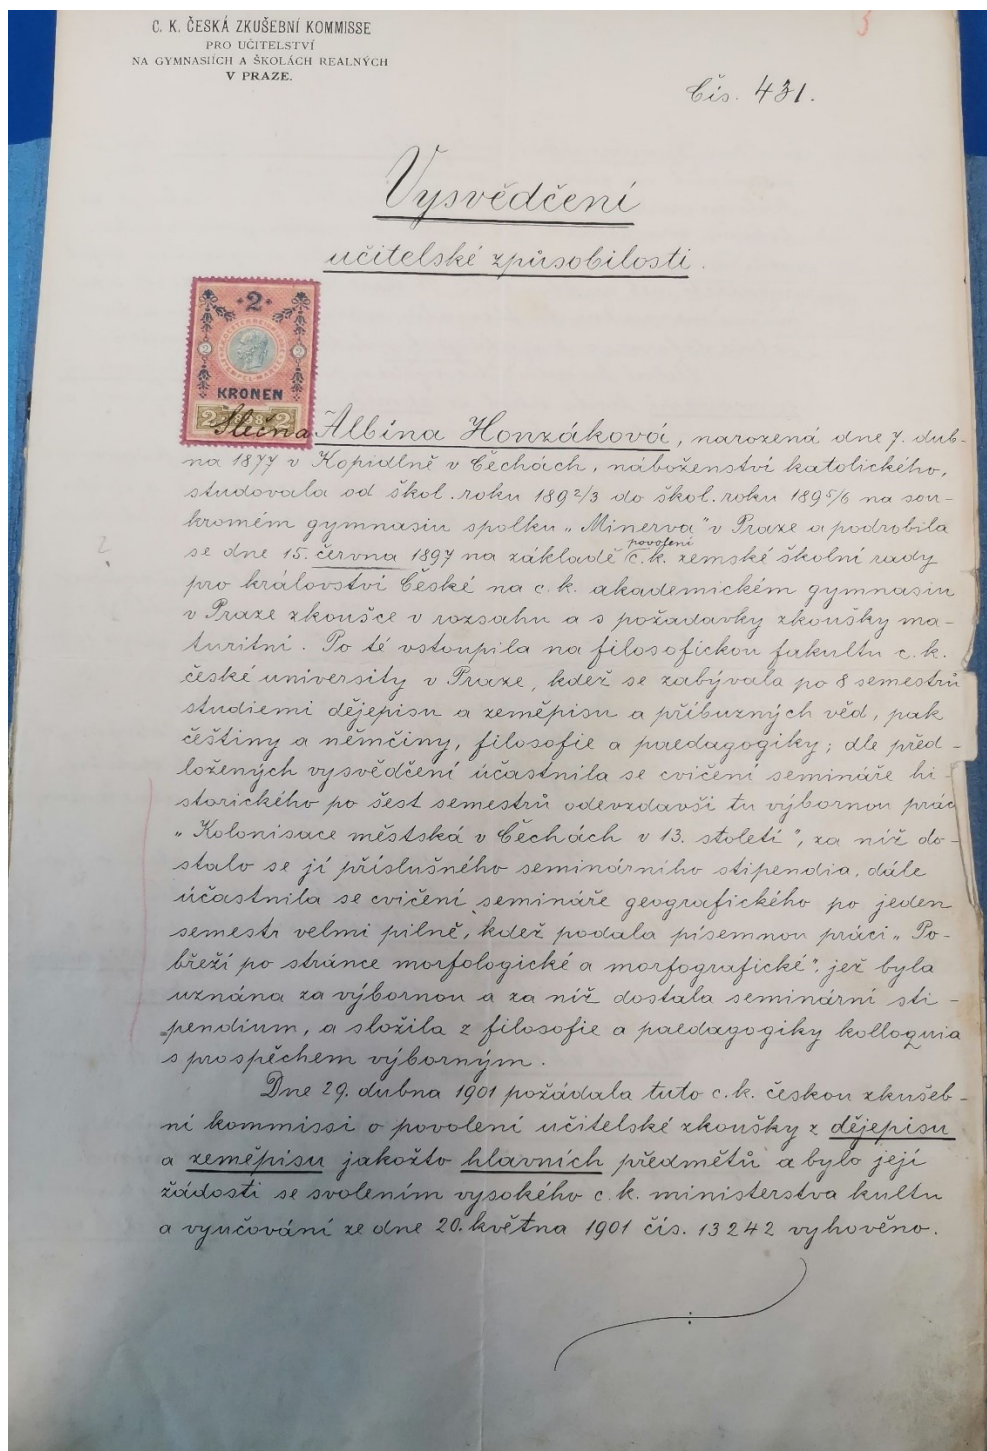 C. K. ČESKÁ ZKUŠEBNÍ KOMMISSE
PRO UČITELSTVÍ
NA GYMNASIÍCH A ŠKOLÁCH REALNÝCH
V PRAZE.
5
Čís. 431.
Vysvědčení
učitelské způsobilosti.
2
2 2
KRONEN
2 1898 2
Slečna Albína Honzáková, narozená dne 7. dub-
na 1877 v Kopidlně v Čechách, náboženství katolického,
studovala od škol. roku 1892/3 do škol. roku 1895/6 na sou-
kromém gymnasiu spolku „Minerva" v Praze a podrobila
povolení
se dne 15. června 1897 na základě c. k. zemské školní rady
pro království České na c. k. akademickém gymnasiu
v Praze zkoušce v rozsahu a s požadavky zkoušky ma-
turitní. Po té vstoupila na filosofickou fakultu c. k.
české university v Praze, kdež se zabývala po 8 semestrů
studiemi dějepisu a zeměpisu a příbuzných věd, pak
češtiny a němčiny, filosofie a paedagogiky; dle před-
ložených vysvědčení účastnila se cvičení semináře hi-
storického po šest semestrů odevzdavši tu výbornou prác
„Kolonisace městská v Čechách v 13. století", za niž do-
stalo se jí příslušného seminárního stipendia, dále
účastnila se cvičení semináře geografického po jeden
semestr velmi pilně, kdež podala písemnou práci „Po-
břeží po stránce morfologické a morfografické", jež byla
uznána za výbornou a za niž dostala seminární sti-
pendium, a složila z filosofie a paedagogiky kolloquia
s prospěchem výborným.
Dne 29. dubna 1901 požádala tuto c. k. českou zkušeb-
ní kommissi o povolení učitelské zkoušky z dějepisu
a zeměpisu jakožto hlavních předmětů a bylo její
žádosti se svolením vysokého c. k. ministerstva kultu
a vyučování ze dne 20. května 1901 čís. 13242 vyhověno.